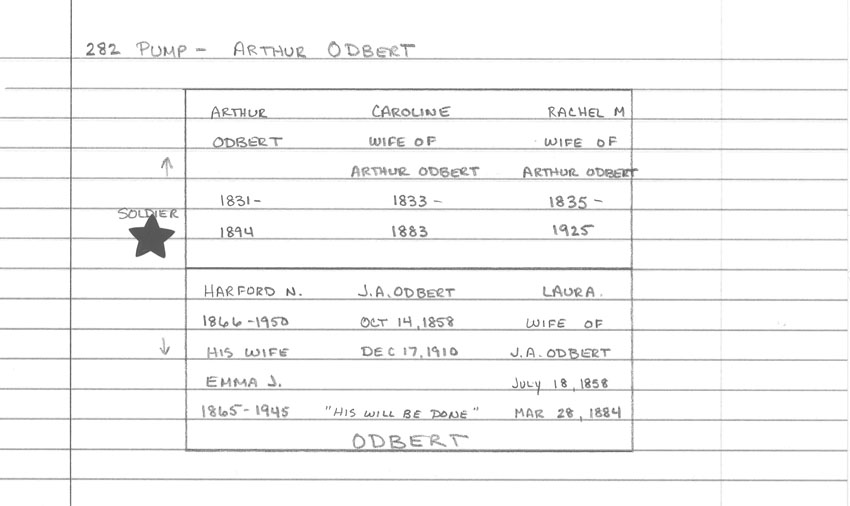 282 PUMP - ARTHUR ODBERT
ARTHUR CAROLINE RACHEL M
ODBERT WIFE OF WIFE OF
ARTHUR ODBERT ARTHUR ODBERT
1831- 1833- 1835-
SOLDIER
1894 1883 1925
HARFORD N. J.A. ODBERT LAURA.
1866-1950 OCT 14, 1858 WIFE OF
HIS WIFE DEC 17, 1910 J.A. ODBERT
EMMA J. JULY 18, 1858
1865-1945 "HIS WILL BE DONE" MAR 28, 1884
ODBERT